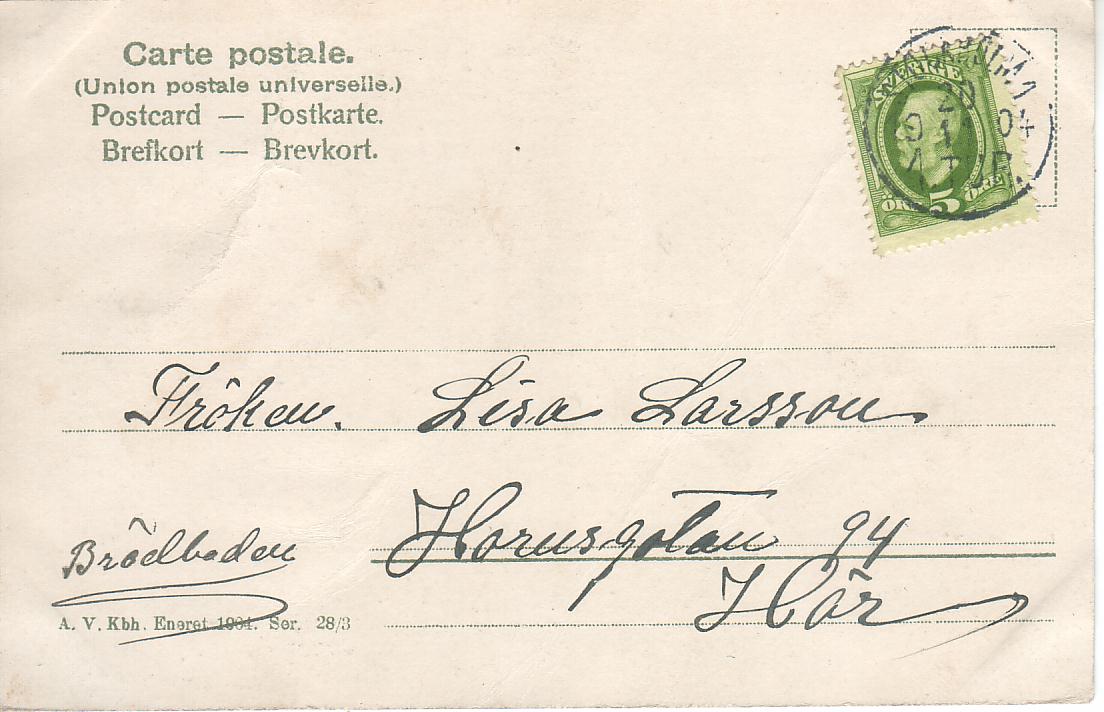 Carte postale.
(Union postale universelle.)
Postcard — Postkarte.
Brefkort — Brevkort.
SVERIGE
20
9 1 04
1.TUR.
5
ÖRE ÖRE
Fröken. Lisa Larsson
Hornsgatan 94
Här
Brödboden
A. V. Kbh. Eneret 1904. Ser. 28/3